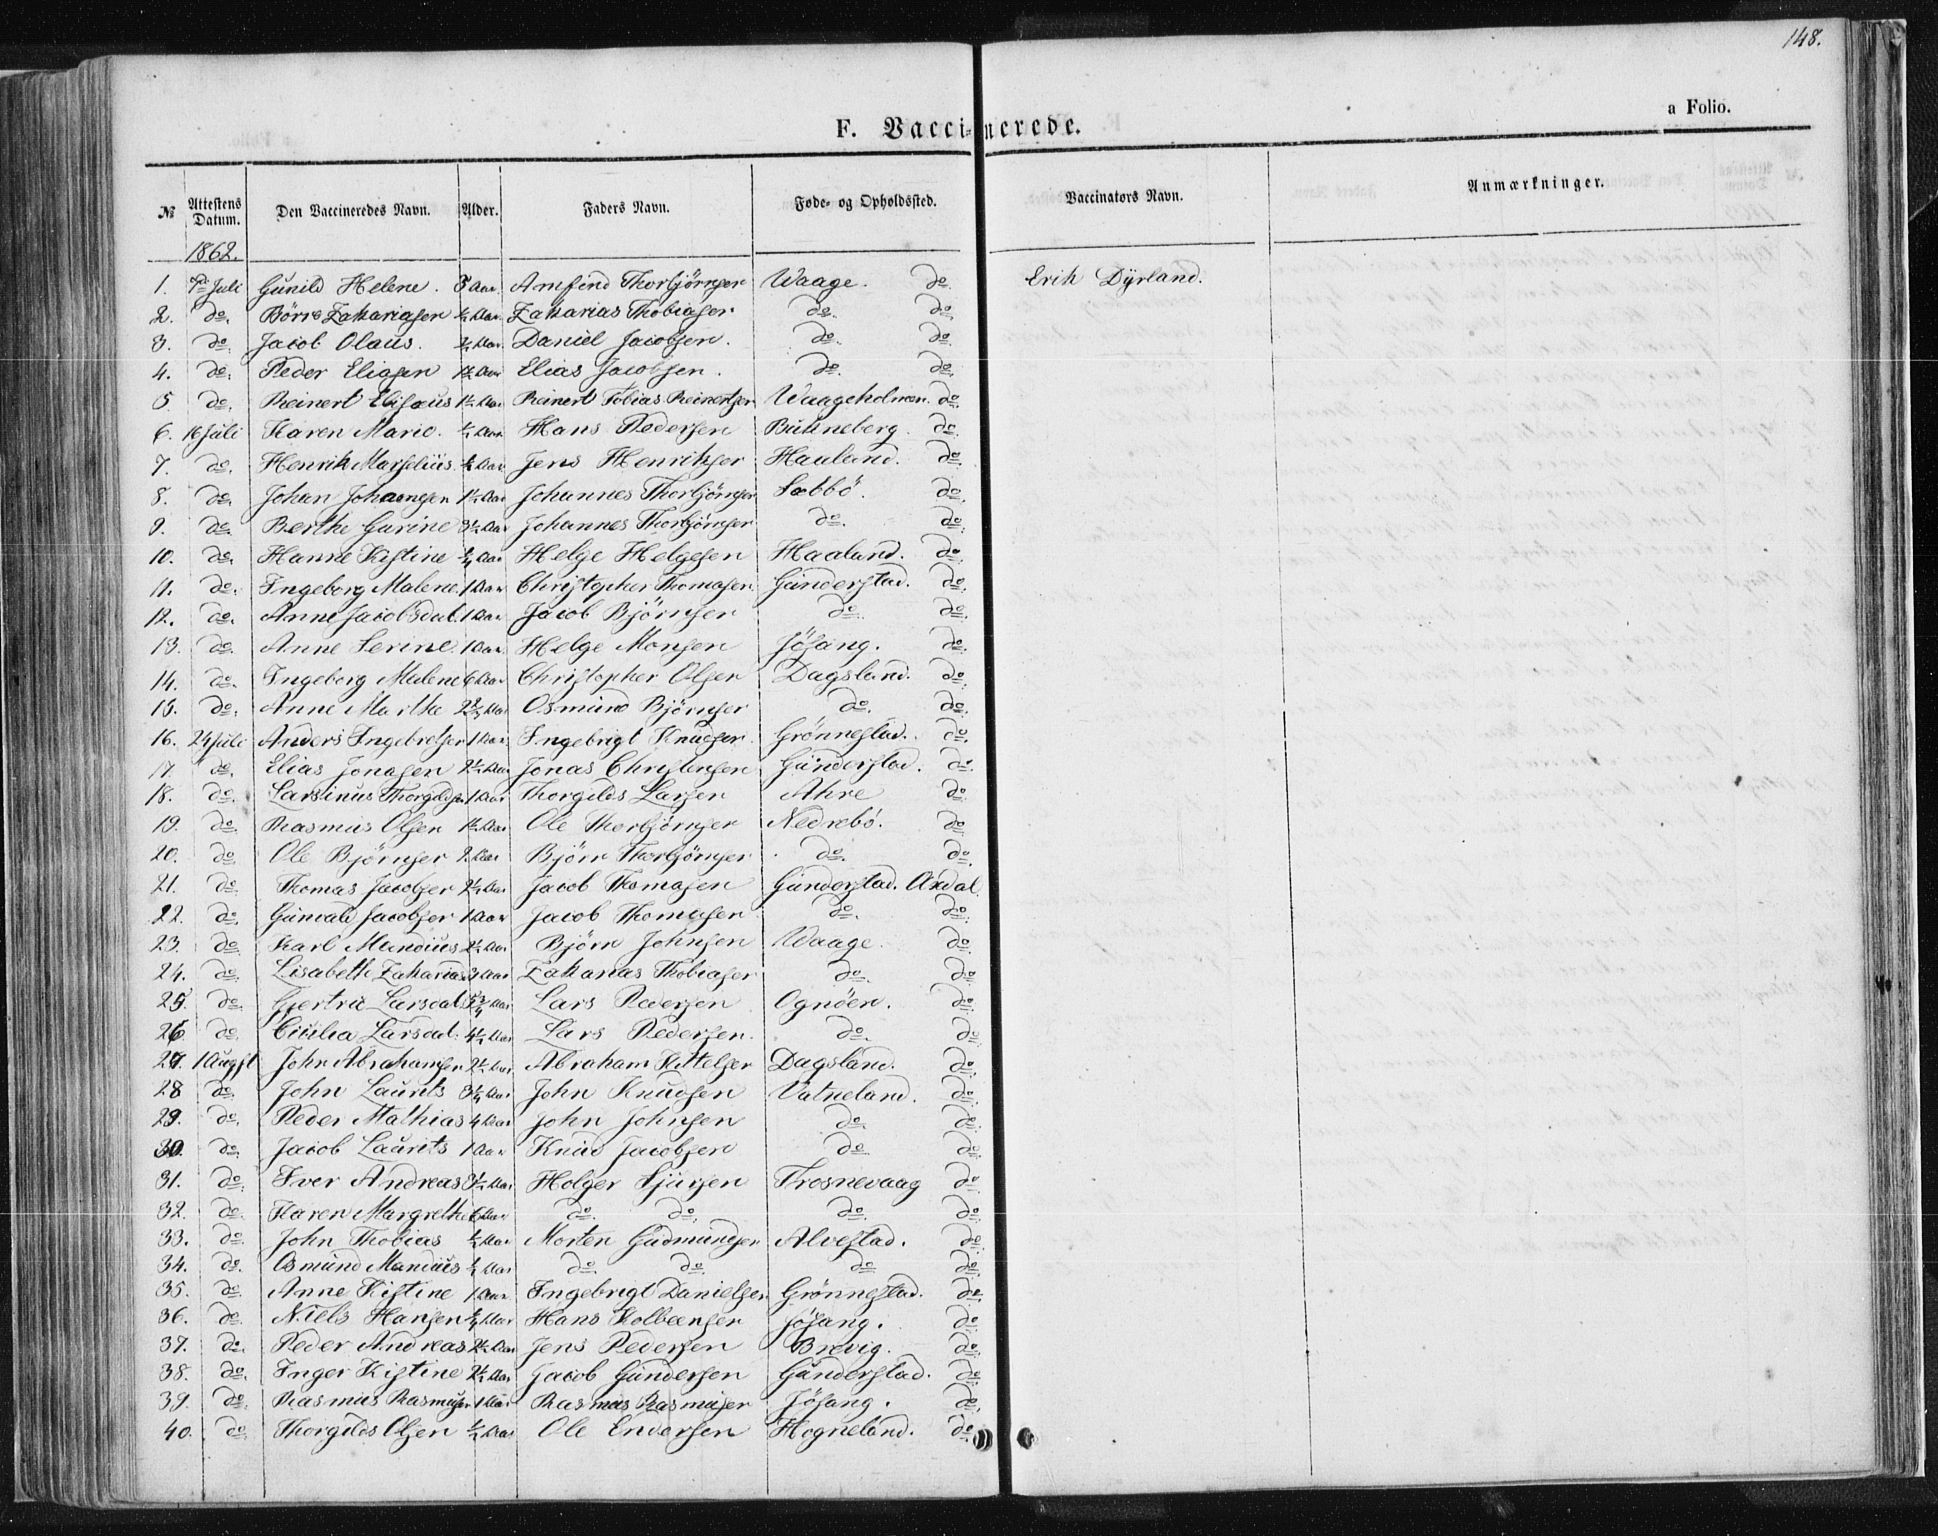 148.
a Folio.
F. Vacci-nerede.
№ Attestens Datum. Den Vaccineredes Navn. Alder. Faders Navn. Føde- og Opholdssted. Vaccinators Navn. Anmærkninger.
1862.
1. 7de Juli Gunild Helene. 3 Aar Arnfind Thorbjörnsen Waage. do. Erik Dÿrland.
2. do. Börre Zakariasen ½ Aar Zakarias Thobiasen do. do.
3. do. Jacob Olaus. Aar Daniel Jacobsen. do. do.
4. do. Peder Eliasen Aar Elias Jacobsen. do. do.
5. do. Reinert Elisæus 1½ Aar Reinert Tobias Reinertsen Waageholmen. do.
6. 16 Juli Karen Marie. ½ Aar Hans Pedersen do.
7. do. Henrik Marselius. Aar Jens Henriksen Hauland. do.
8. do. Johan Johannesen 1½ Aar Johannes Thorbjörnsen Sæbbö. do.
9. do. Berthe Gurine 3½ Aar Johannes Thorbjörnsen do. do.
10. do. Hanne Kistine Aar Helge Helgesen Haaland. do.
11. do. Ingeborg Malene 1 Aar Christopher Thomasen Gunderstad. do.
12. do. Anne Jacobsdat. 1 Aar Jacob Björnsen do. do.
13. do. Anne Serine 1 Aar Helge Monsen Jösang. do.
14. do. Ingeborg Malene 6 Aar Christopher Olsen Dagsland. do.
15. do. Anne Marthe Aar Osmund Björnsen do. do.
16. 24 Juli Anders Ingebretsen 1 Aar Ingebrigt Knudsen Grönnestad. do.
17. do. Elias Jonasen 2½ Aar Jonas Christensen Gunderstad. do.
18. do. Larsinus Thorgildsen 1 Aar Thorgilds Larsen Ahre do.
19. do. Rasmus Olsen 1½ Aar Ole Thorbjörnsen Nedrebö. do.
20. do. Ole Björnsen 2 Aar Björn Thorbjörnsen do. do.
21. do. Thomas Jacobsen 2½ Aar Jacob Thomasen Gunderstad. Ardal
22. do. Gunvald Jacobsen 1 Aar Jacob Thomasen do. do.
23. do. Karl Mandius 2½ Aar Björn Johnsen Waage. do.
24. do. Lisabeth Zakarias 3 Aar Zakarias Thobiasen do. do.
25. do. Gjertrid Larsdat. Aar Lars Pedersen Ognöen. do.
26 do. Cicilia Larsdat. 4½ Aar Lars Pedersen. do. do.
27. 1 Augst John Abrahamsen 2½ Aar Abraham Kittelsen Dagsland. do.
28 do. John Laurits 3½ Aar John Knudsen Vatneland. do.
29. do. Peder Mathias 4 Aar John Johnsen do. do.
30. do. Jacob Laurits 1 Aar Knud Jacobsen do. do.
31. do. Iver Andreas 3½ Aar Holger Sjursen Trosnevaag do.
32. do. Karen Margrethe 6 Aar do. do. do. do.
33. do. John Thobias ½ Aar Morten Gudmunsen Alvestad. do.
34. do. Osmund Mandius ½ Aar do. do. do. do.
35. do. Anne Kistine 1 Aar Ingebrigt Danielsen Grönnestad. do.
36. do. Niels Hansen Aar Hans Kolbeensen Jösang. do.
37. do. Peder Andreas 2½ Aar Jens Pedersen Brevig. do.
38. do. Inger Kistine 2½ Aar Jacob Gundersen Gunderstad. do.
39. do. Rasmus Rasmusen 1 Aar Rasmus Rasmusen Jösang. do.
40. do. Thorgilds Olsen ½ Aar Ole Endersen Hogneland. do.